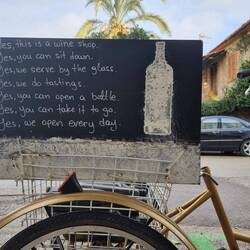 Yes, this is a wine shop.
Yes, you can sit down.
Yes, we serve by the glass.
Yes, we do tastings.
Yes, you can open a bottle.
Yes, you can take it to go.
Yes, we open every day.